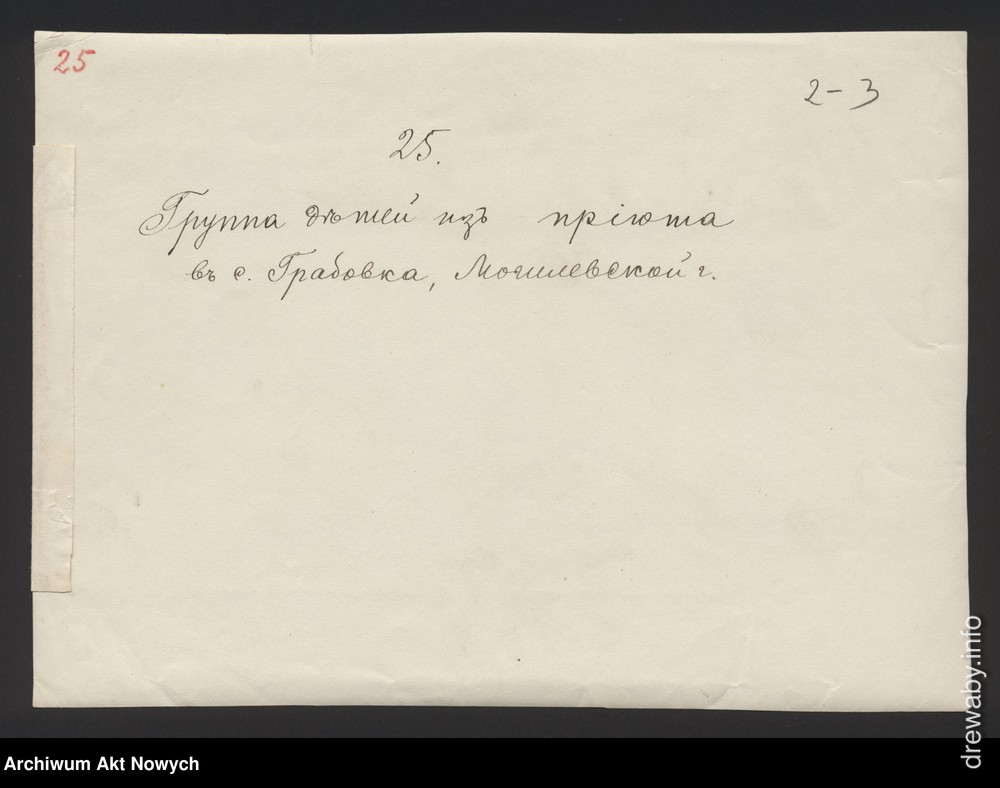 25
2-3
25.
Группа дѣтей изъ пріюта
въ с. Грабовка, Могилевской г.
drewaby.info
Archiwum Akt Nowych